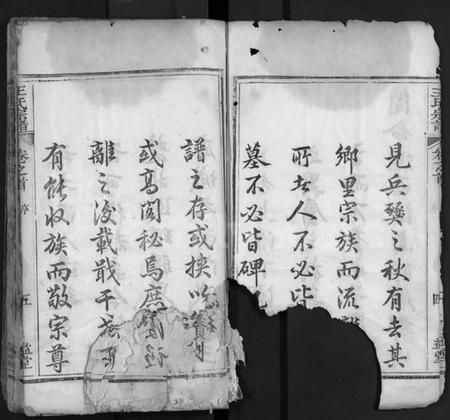 王氏宗譜
卷之首
四
見兵燹之秋有去其
鄉里宗族而流離
所者人不必皆
墓不必皆碑
譜之存或挾以
或高閣秘焉
離之後載戢干
有能收族而敬宗尊
王氏宗譜
卷之首
序
五